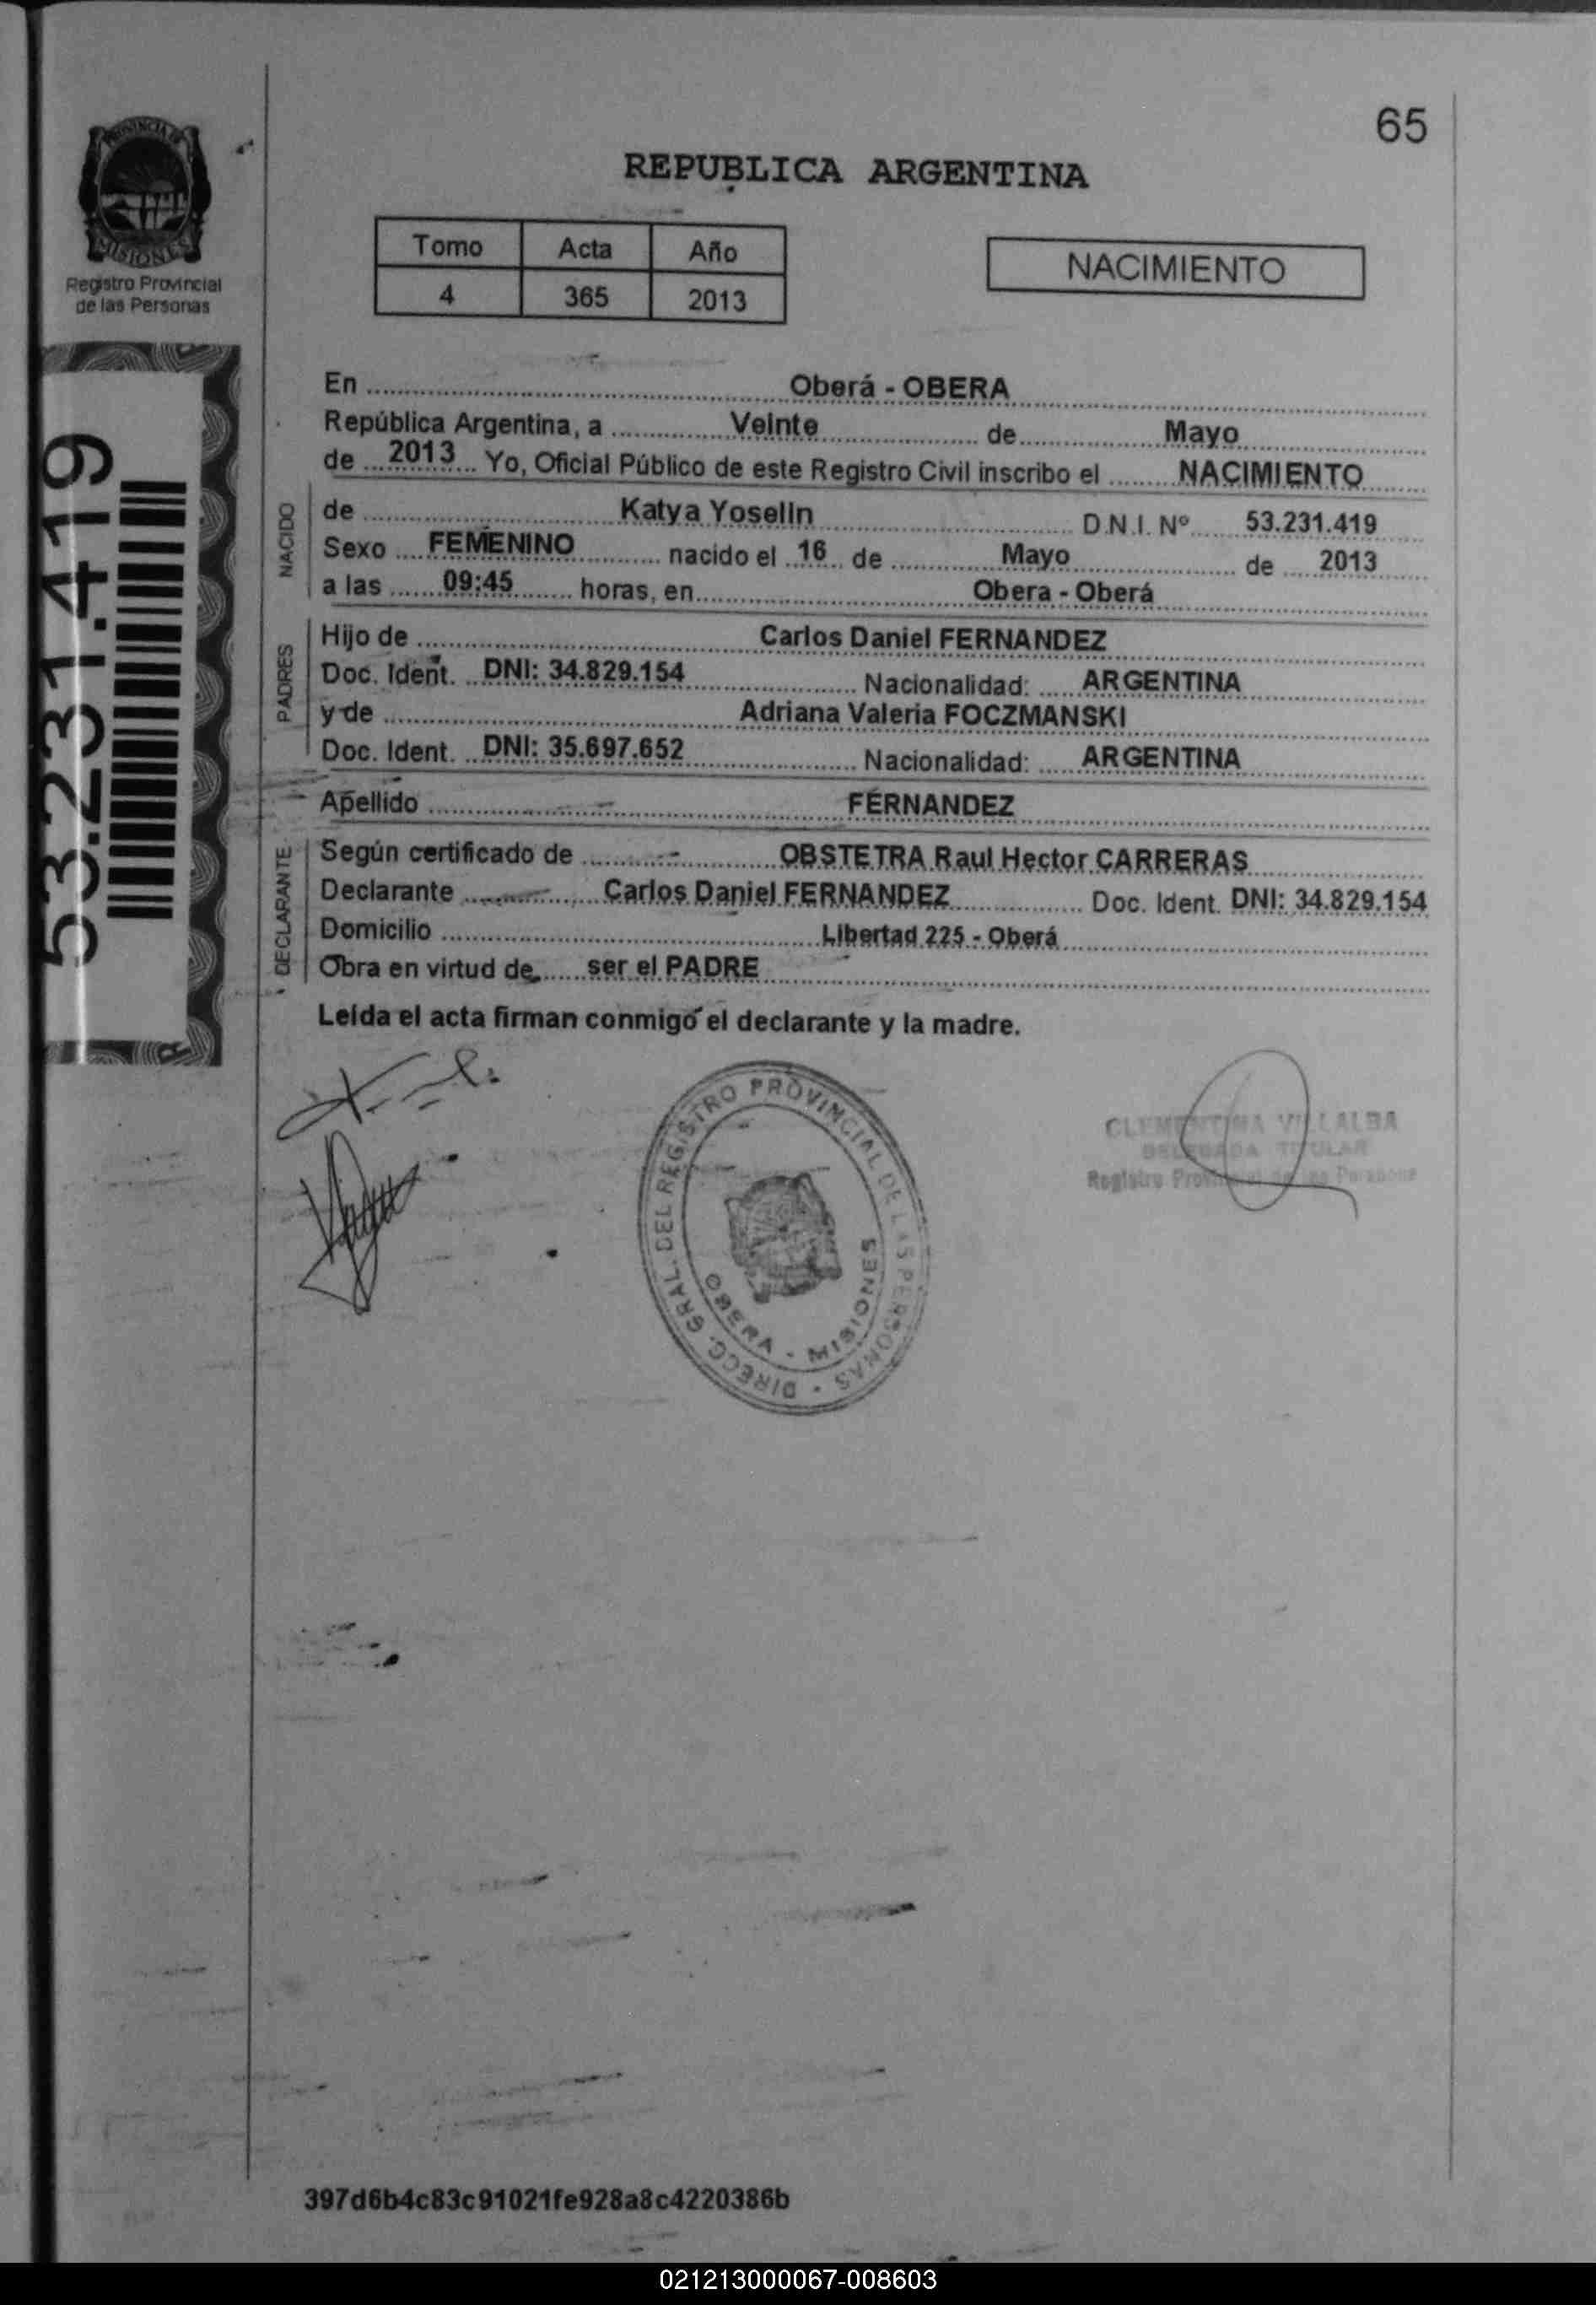 65
PROVINCIA DE
MISIONES
Registro Provincial
de las Personas
REPUBLICA ARGENTINA
Tomo Acta Año
4 365 2013
NACIMIENTO
53.231.419
En Oberá - OBERA
República Argentina, a Veinte de Mayo
de 2013 Yo, Oficial Público de este Registro Civil inscribo el NACIMIENTO
NACIDO
de Katya Yoselin D.N.I. Nº 53.231.419
Sexo FEMENINO nacido el 16 de Mayo de 2013
a las 09:45 horas, en Obera - Oberá
PADRES
Hijo de Carlos Daniel FERNANDEZ
Doc. Ident. DNI: 34.829.154 Nacionalidad: ARGENTINA
y de Adriana Valeria FOCZMANSKI
Doc. Ident. DNI: 35.697.652 Nacionalidad: ARGENTINA
Apellido FERNANDEZ
DECLARANTE
Según certificado de OBSTETRA Raul Hector CARRERAS
Declarante Carlos Daniel FERNANDEZ Doc. Ident. DNI: 34.829.154
Domicilio Libertad 225 - Oberá
Obra en virtud de ser el PADRE
Leída el acta firman conmigo el declarante y la madre.
DIRECC. GRAL. DEL REGISTRO PROVINCIAL DE LAS PERSONAS
OBERA - MISIONES
CLEMENTINA VILLALBA
DELEGADA TITULAR
Registro Provincial de las Personas
397d6b4c83c91021fe928a8c4220386b
021213000067-008603